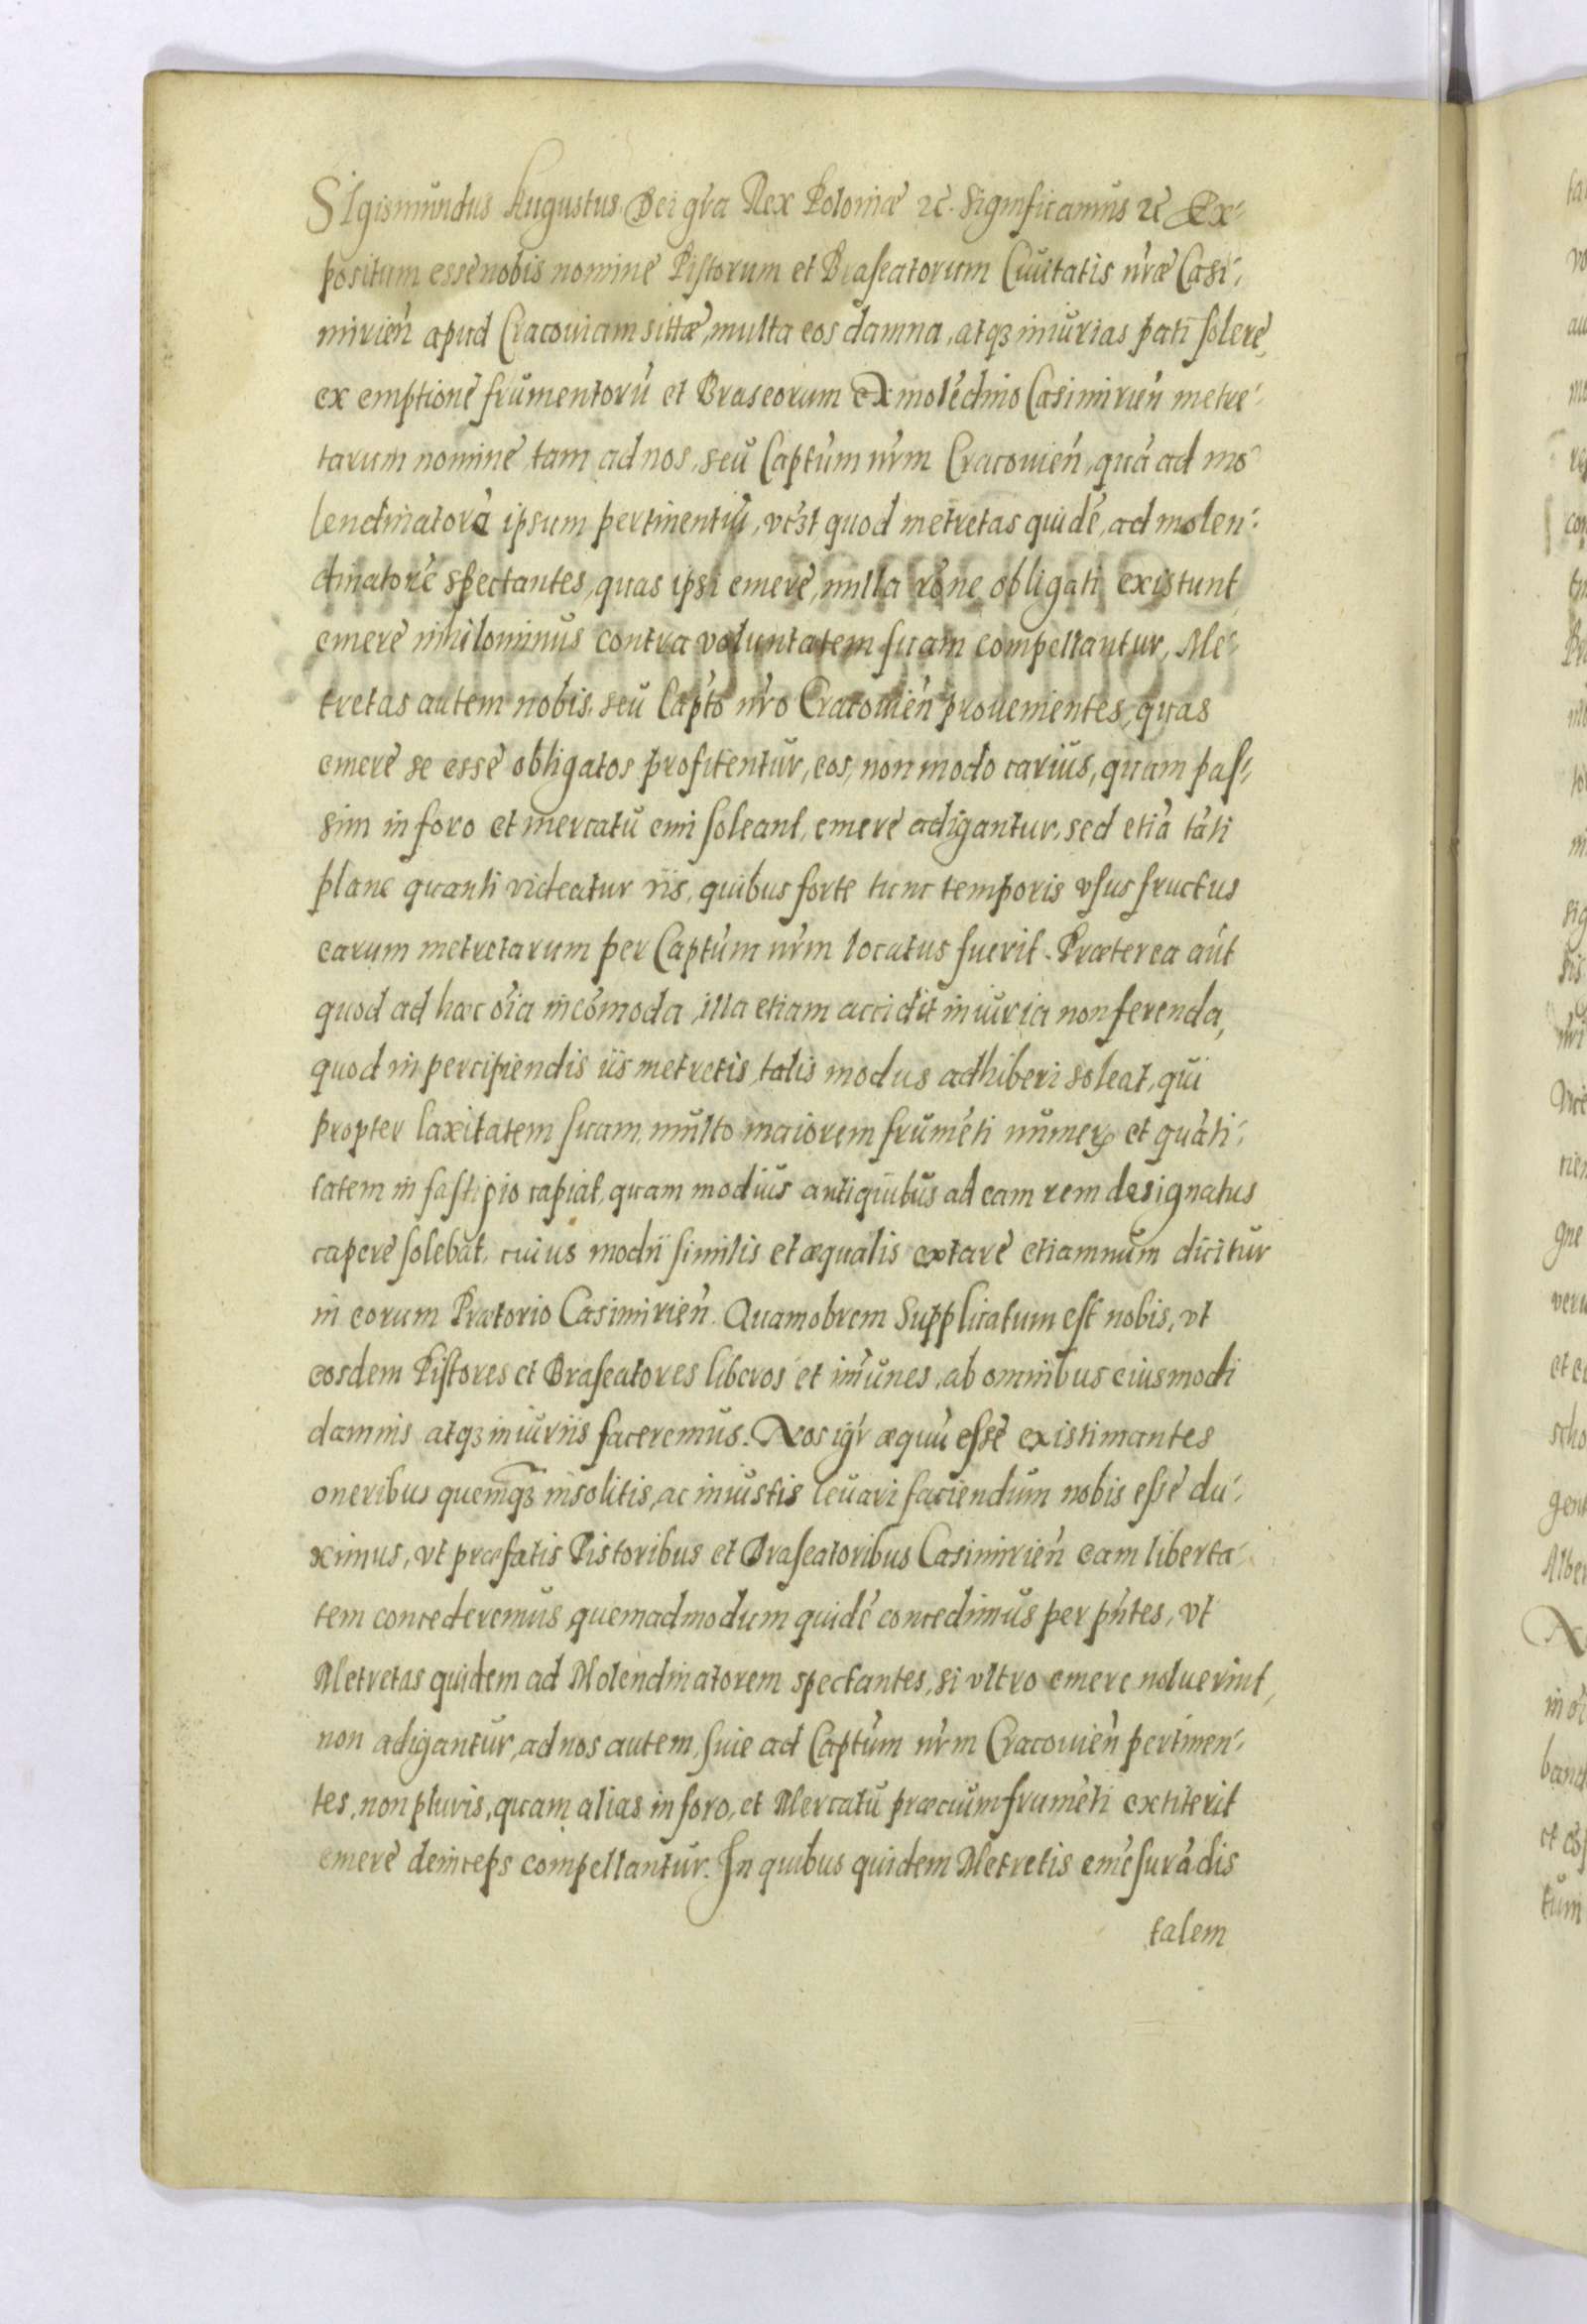 SIgismundus Augustus Dei gr̃a Rex Poloniæ ꝛc̃. Significamus ꝛc̃ Ex⸗
positum esse nobis nomine Piſtorum et Braſeatorum Ciuitatis nr̃æ Casi⸗
mirien̄ apud Cracouiam sittæ, multa eos damna, atqꝫ iniurias pati ſolere,
ex emptione frumentorū et Braseorum ex molēdino Casimirien̄ metre⸗
tarum nomine, tam ad nos, seu Captūm nr̃m Cracouien̄, quā ad mo⸗
lendinatorē ipsum pertinentiū, vtꝫt quod metretas quidē, ad molen⸗
dinatorē spectantes, quas ipsi emere, nulla rōne obligati existunt
emere nihilominus contra voluntatem ſuam compellantur, Me⸗
tretas autem nobis, seu Capto nr̃o Cracouien̄ prouenientes, quas
emere se esse obligatos profitentur, eos, non modo carius, quam paſ⸗
sim in foro et mercatu emi ſoleant, emere adigantur, sed etiā tāti
plane quanti videatur iis, quibus forte tunc temporis vſus fructus
earum metretarum per Captūm nr̃m locatus fuerit. Præterea aūt
quod ad hæc oīa incōmoda, illa etiam accidit iniuria non ferenda,
quod in percipiendis iis metretis, talis modus adhiberi soleat, qui
propter laxitatem ſuam, multo maiorem frumēti numeꝝ et quāti⸗
tatem in faſtigio capiat, quam modius antiquitus ad eam rem designatus
capere ſolebat, cuius modii ſimilis et æqualis extare etiamnum dicitur
in eorum Prætorio Casimirien̄. Quamobrem Supplicatum eſt nobis, vt
eosdem Piſtores et Braſeatores liberos et im̄unes, ab omnibus eiusmodi
damnis atqꝫ iniuriis faceremus. Nos igr̃ æquū eſſe existimantes
oneribus quemqꝫ insolitis, ac iniustis leuari faciendum nobis eſſe du⸗
ximus, vt præfatis Pistoribus et Braſeatoribus Casimirien̄ eam liberta⸗
tem concederemus quemadmodum quidē concedimus per pn̄tes, vt
Metretas quidem ad Molendinatorem spectantes, si vltro emere noluerint,
non adigantur, ad nos autem, ſiue ad Captūm nr̃m Cracouien̄ pertinen⸗
tes, non pluris, quam alias in foro, et Mercatu præcium frumēti extiterit
emere deinceps compellantur. In quibus quidem Metretis emēſurādis
talem